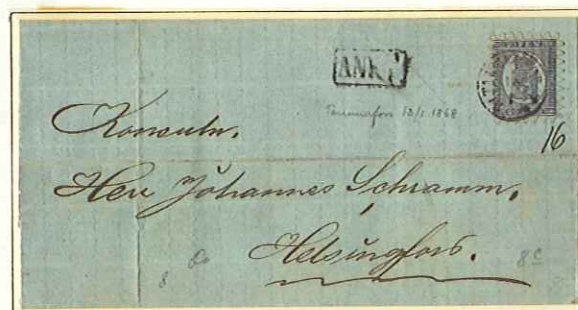 PEN
ANK
Tammerfors 13/1 1868
16
Konsuln.
Herr Johannes Schramm,
Helsingfors.
8
8